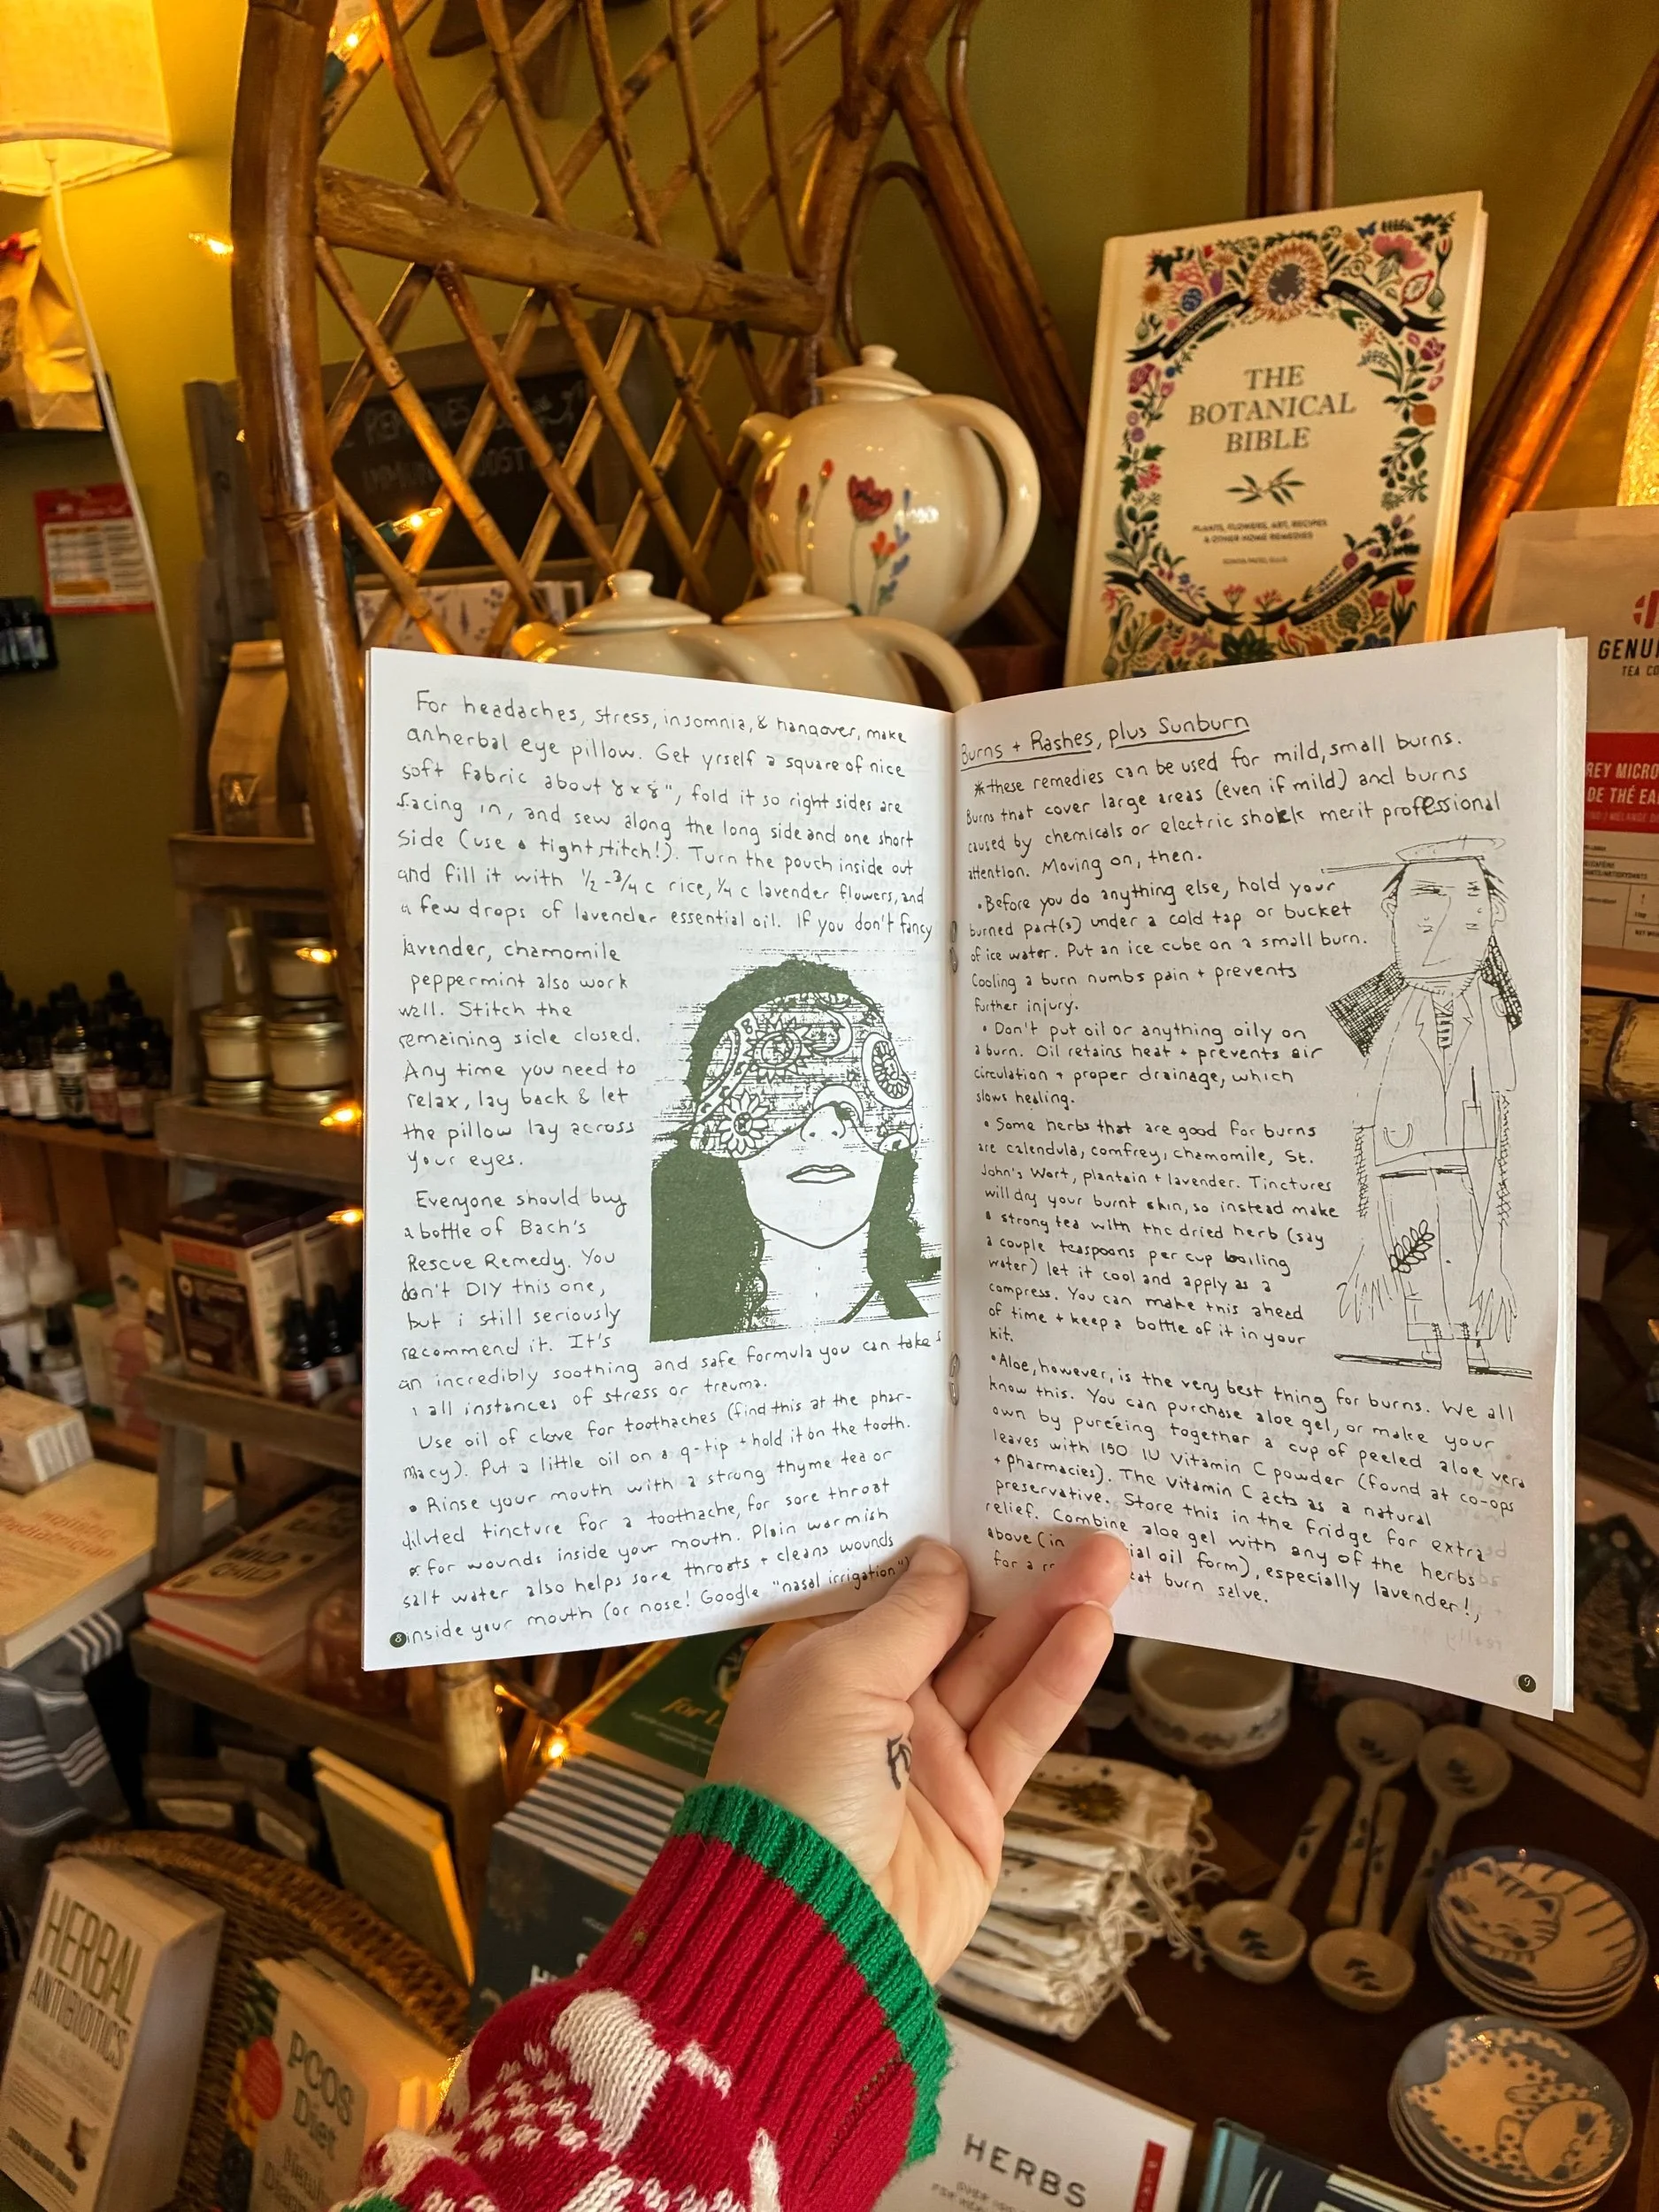 THE
BOTANICAL
BIBLE
PLANTS, FLOWERS, ART, RECIPES
& OTHER HOME REMEDIES
SONYA PATEL ELLIS
REMEDIES
GENUI
TEA CO
REY MICRO
DE THÉ EA
For headaches, stress, insomnia, & hangover, make
anherbal eye pillow. Get yrself a square of nice
soft fabric about 8 x 8", fold it so right sides are
facing in, and sew along the long side and one short
side (use a tight stitch!). Turn the pouch inside out
and fill it with ½ - ¾ c rice, ¼ c lavender flowers, and
a few drops of lavender essential oil. If you don't fancy
lavender, chamomile
peppermint also work
well. Stitch the
remaining side closed.
Any time you need to
relax, lay back & let
the pillow lay across
your eyes.
Everyone should buy
a bottle of Bach's
Rescue Remedy. You
don't DIY this one,
but i still seriously
recommend it. It's
an incredibly soothing and safe formula you can take
all instances of stress or trauma.
Use oil of clove for toothaches (find this at the phar-
macy). Put a little oil on a q-tip + hold it on the tooth.
• Rinse your mouth with a strong thyme tea or
diluted tincture for a toothache, for sore throat
or for wounds inside your mouth. Plain warmish
salt water also helps sore throats + cleans wounds
inside your mouth (or nose! Google "nasal irrigation")
8
Burns + Rashes, plus Sunburn
*these remedies can be used for mild, small burns.
Burns that cover large areas (even if mild) and burns
caused by chemicals or electric shock merit professional
attention. Moving on, then.
• Before you do anything else, hold your
burned part(s) under a cold tap or bucket
of ice water. Put an ice cube on a small burn.
Cooling a burn numbs pain + prevents
further injury.
• Don't put oil or anything oily on
a burn. Oil retains heat + prevents air
circulation + proper drainage, which
slows healing.
• Some herbs that are good for burns
are calendula, comfrey, chamomile, St.
John's Wort, plantain + lavender. Tinctures
will dry your burnt skin, so instead make
a strong tea with the dried herb (say
a couple teaspoons per cup boiling
water) let it cool and apply as a
compress. You can make this ahead
of time + keep a bottle of it in your
kit.
• Aloe, however, is the very best thing for burns. We all
know this. You can purchase aloe gel, or make your
own by pureéing together a cup of peeled aloe vera
leaves with 150 IU Vitamin C powder (found at co-ops
+ pharmacies). The Vitamin C acts as a natural
preservative. Store this in the fridge for extra
relief. Combine aloe gel with any of the herbs
above (in ial oil form), especially lavender!,
for a r eat burn salve.
9
for L
HERBAL
ANTIBIOTICS
PCOS
Diet
HERBS